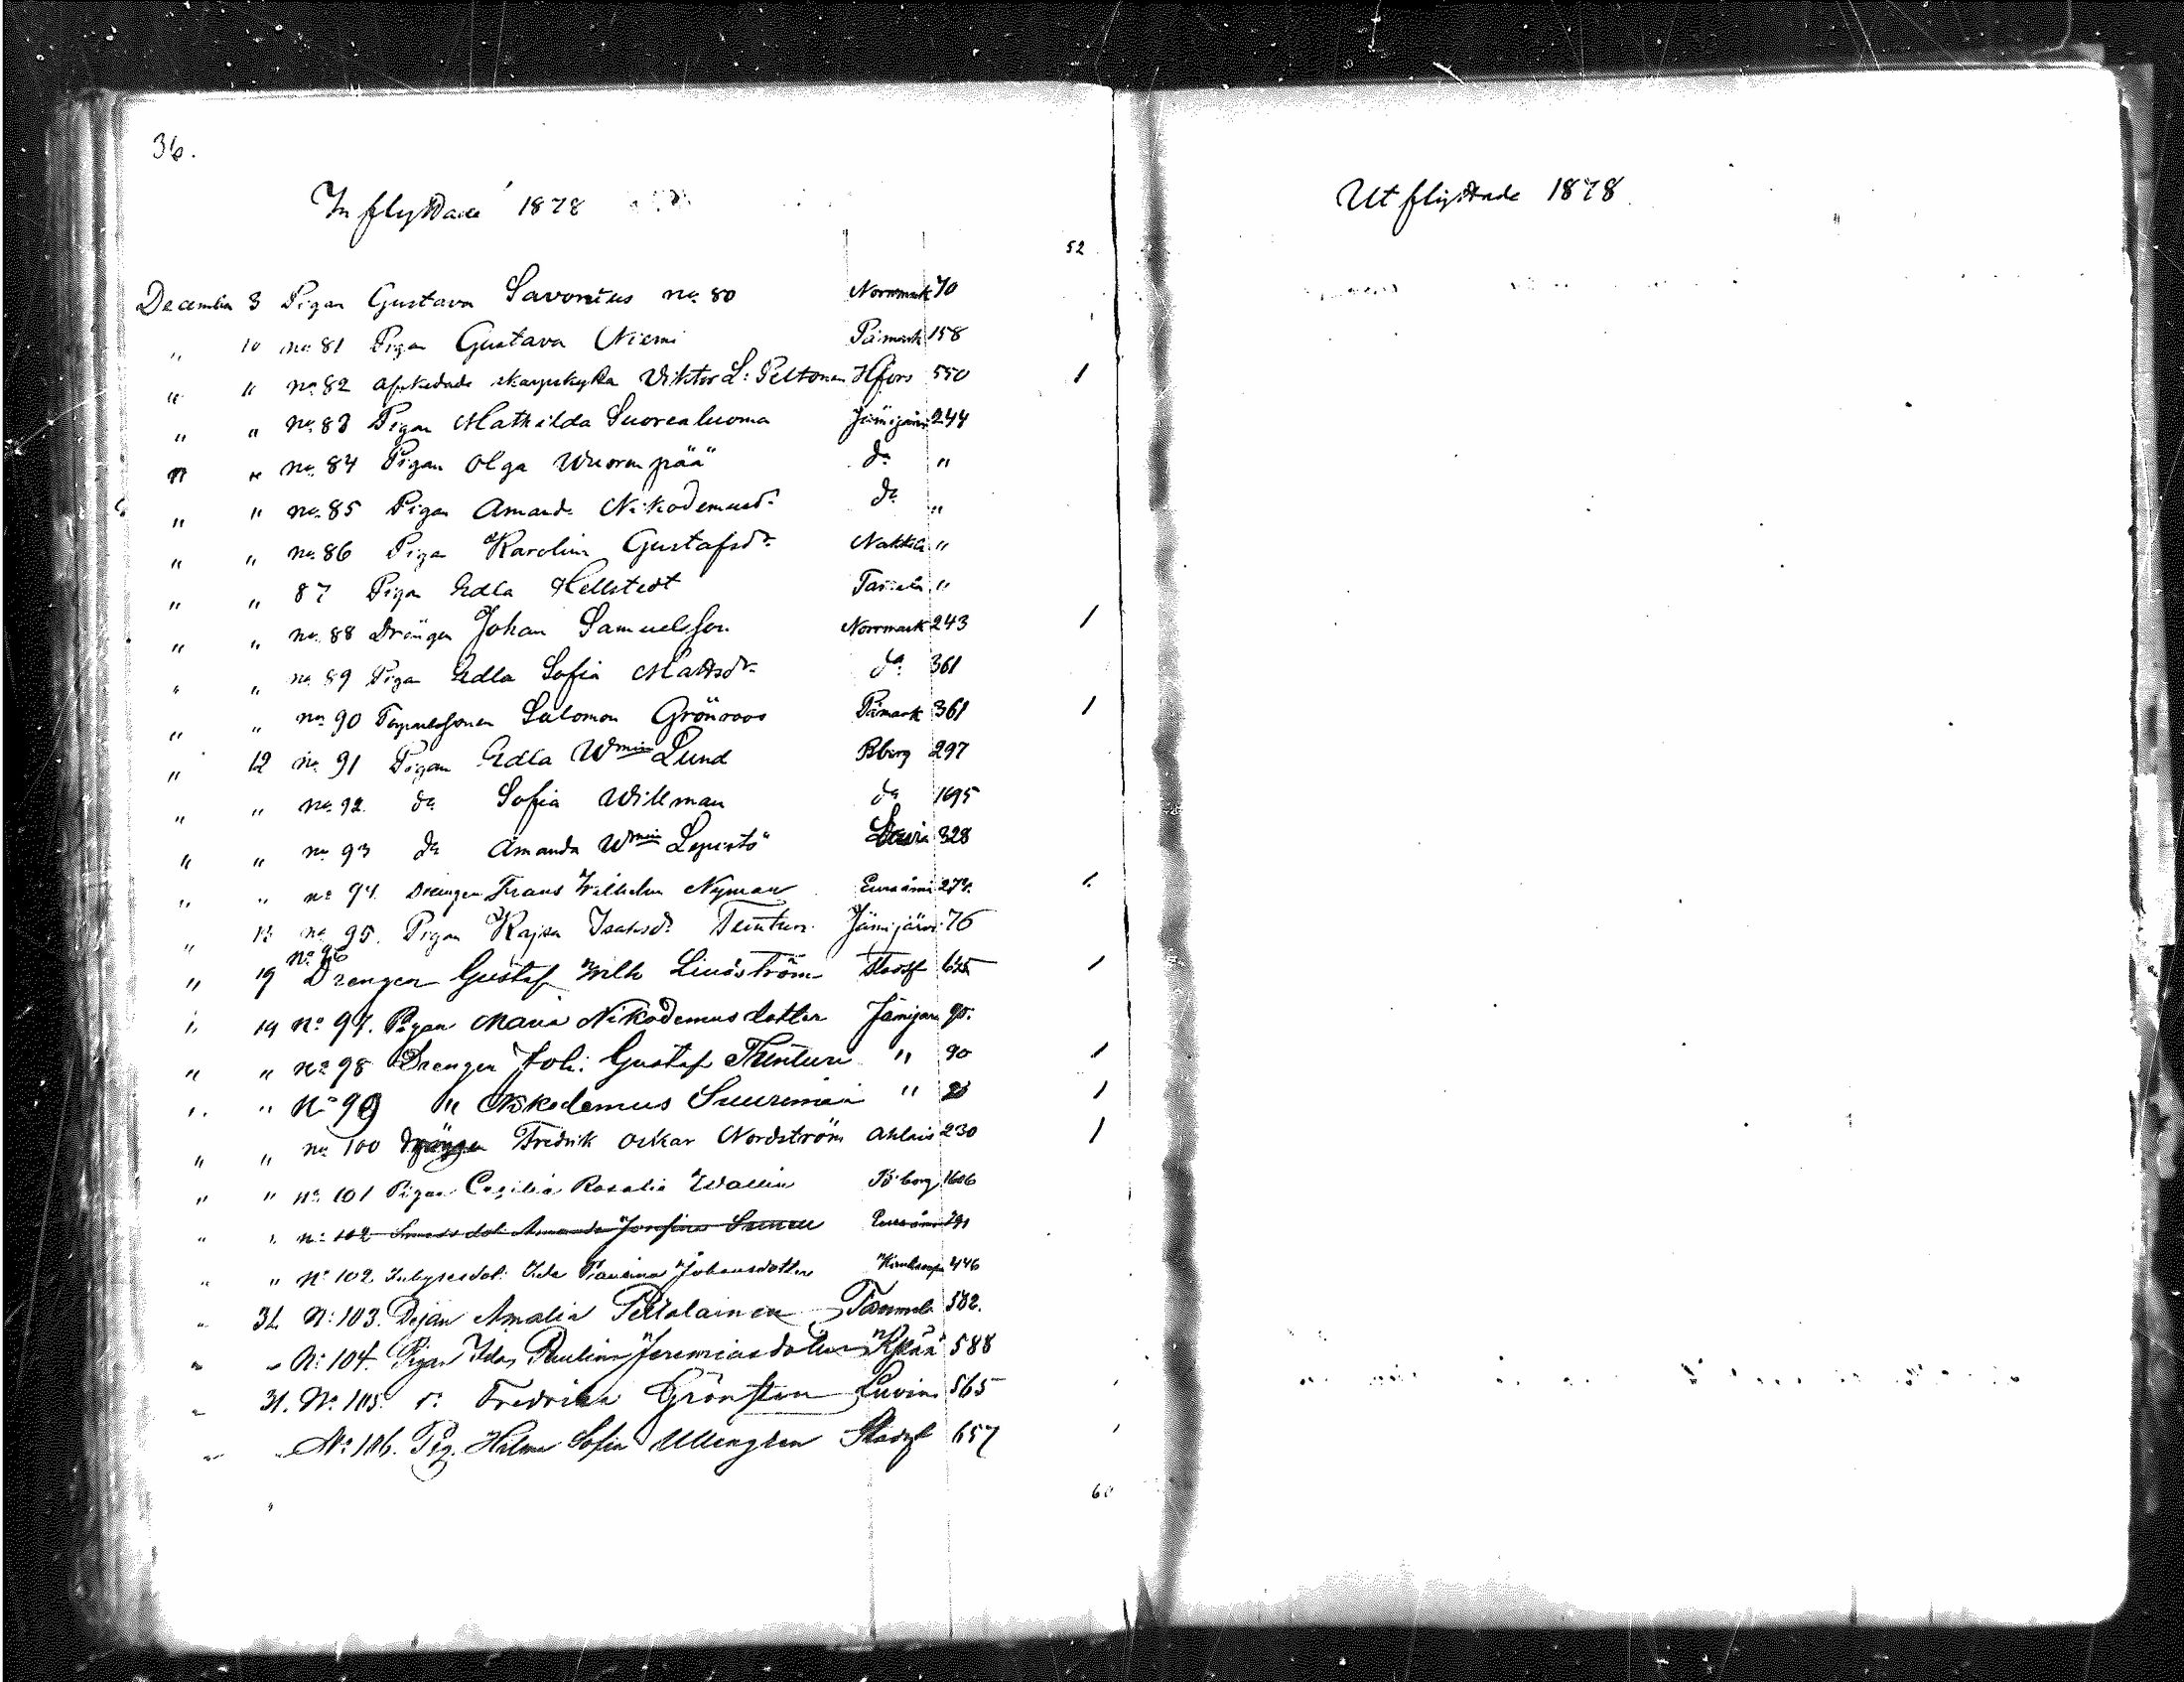 36.
Inflyttade 1878
52
December 3 Pigan Gustava Savonius no. 80 Norrmark 70
" 10 no. 81 Pigan Gustava Niemi Påmark 158
" " no. 82 afskedade skarpskytten Viktor L: Peltonen Hfors 550 1
" " no. 83 Pigan Mathilda Suorealuoma Jämijärvi 244
" " no. 84 Pigan Olga Wuorenpää do "
" " no. 85 Pigan Amanda Nikodemusdr do "
" " no. 86 Pigan Karolina Gustafsdr Nakkila "
" " 87 Pigan Edla Hellstedt "
" " no. 88 Drängen Johan Samuelsson Norrmark 243 1
" " no. 89 Pigan Edla Sofia Mattsdr do 361
" " no. 90 Salomon Grönroos Påmark 361 1
" 12 no. 91 Pigan Edla Wmina Lund Bberg 297
" " no. 92 do Sofia Willman do 1695
" " no. 93 do Amanda Wmina Lepistö Lavia 328
" " no. 94. Drengen Frans Wilhelm Nyman Euraåmi 273. 1.
" no. 95. Pigan Kajsa Isaksdr Tenturi Jämijärvi 76
" 19 No 96 Drengen Gustaf Wilh Lindström 1
" 19 No 97. Pigan Maria Nikodemusdotter Jämijärvi 90.
" " no 98 Drengen Joh: Gustaf Thenturi " 90 1
" " No 99 " Nikodemus " 1
" " no 100 drängen Fredrik Oskar Nordström Ahlais 230 1
" " no 101 Pigan Cecilia Rosalia Wallin Bjbörg 1606
" " no 102 Amanda Josefina Euraåmi 291
" " No 102 Inhysesdot: Ida Johansdotter 446
" 31. No: 103. Pejan Amalia Peltolainen 582.
" " No: 104. Pigan Ida Paulina Jeremiasdotter 588
" 31. No. 105. do Fredrika Grönsten Luvia 565
" " No: 106. Pig. Hilma Sofia Ullengren 657
60
Utflyttade 1878.